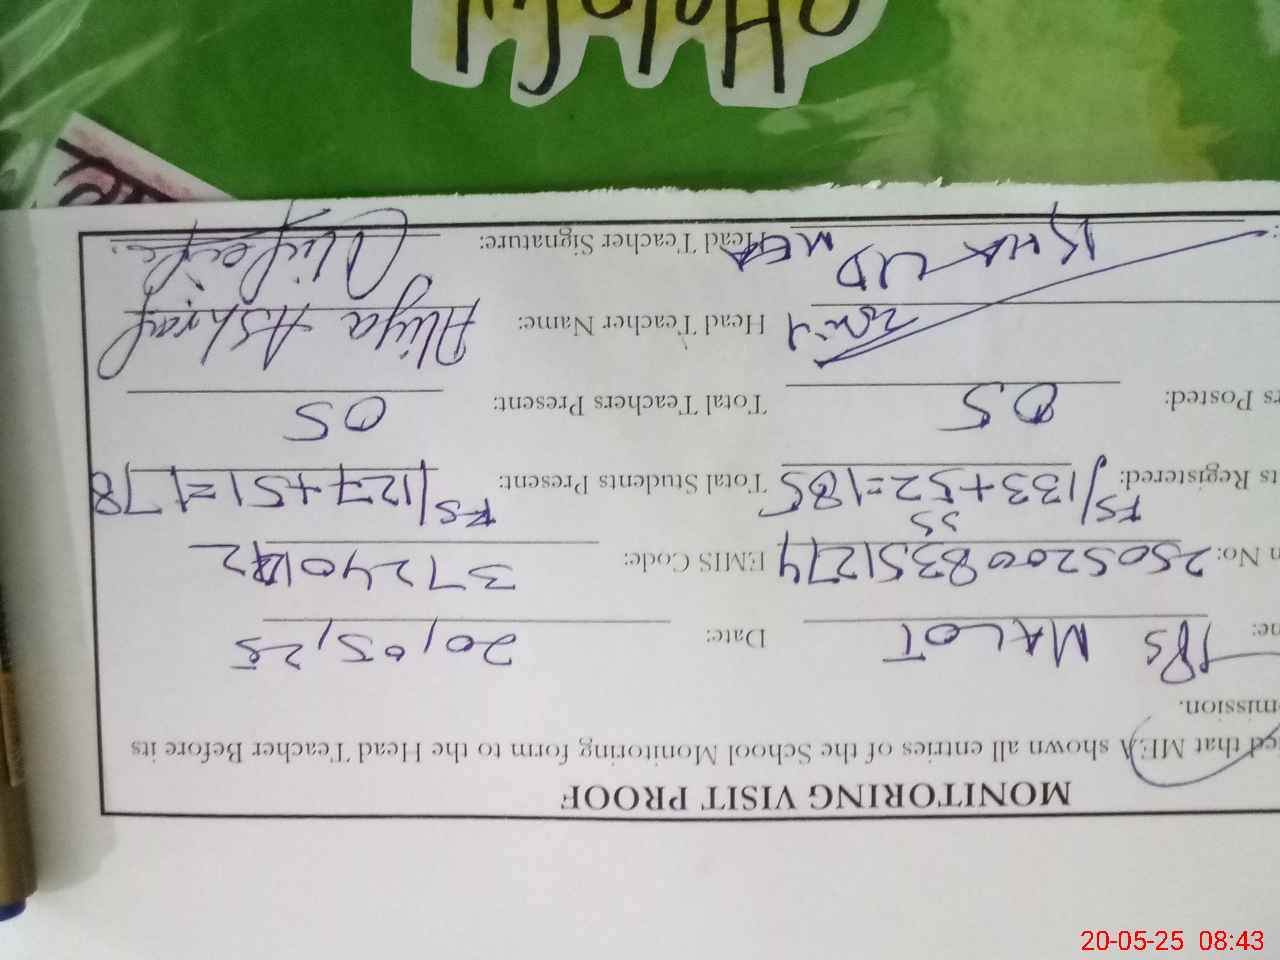 MONITORING VISIT PROOF
ced that MEA shown all entries of the School Monitoring form to the Head Teacher Before its
mission.
ne: PS MALOT Date: 20,05,25
n No: 250520008351274 EMIS Code: 37240
ts Registered: FS/133+52=185 Total Students Present: FS/127+51=178
SS
rs Posted: 05 Total Teachers Present: 05
Head Teacher Name: Aliya Ashraf
MEA Head Teacher Signature:
20-05-25 08:43